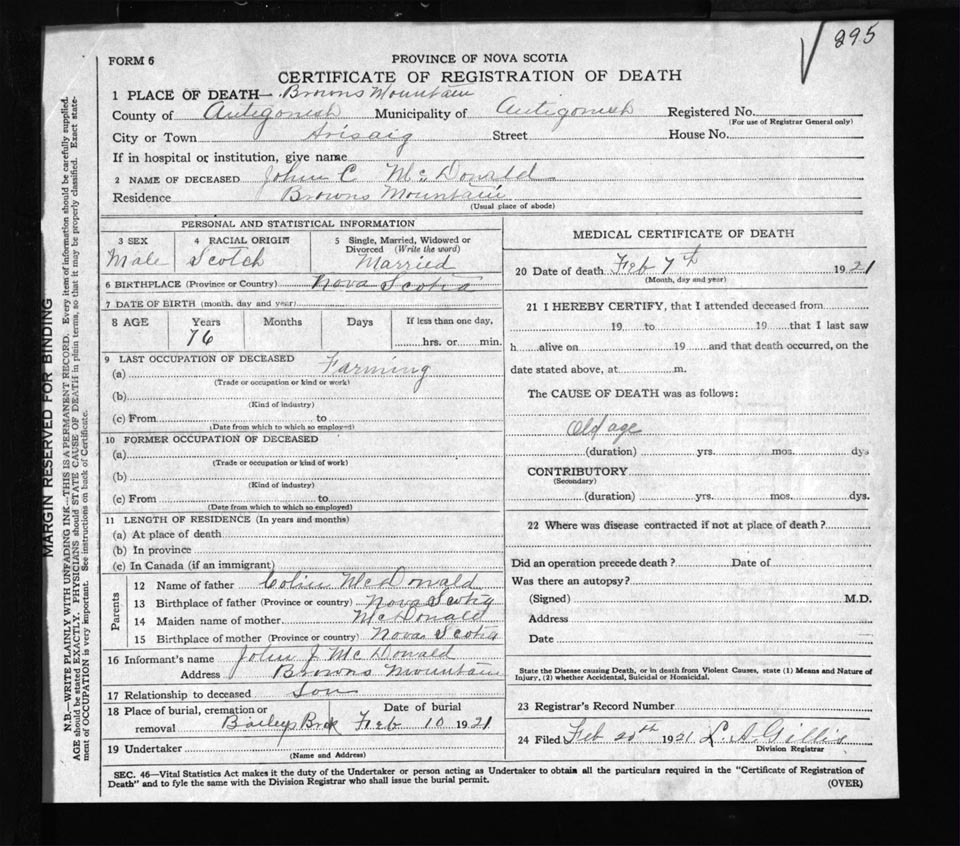 895
FORM 6
PROVINCE OF NOVA SCOTIA
CERTIFICATE OF REGISTRATION OF DEATH
1 PLACE OF DEATH— Browns Mountain
County of Antigonish Municipality of Antigonish Registered No.
(For use of Registrar General only)
City or Town Arisaig Street House No.
If in hospital or institution, give name
2 NAME OF DECEASED John C Mc Donald
Residence Browns Mountain
(Usual place of abode)
PERSONAL AND STATISTICAL INFORMATION
3 SEX 4 RACIAL ORIGIN 5 Single, Married, Widowed or
Divorced (Write the word)
Male Scotch Married
6 BIRTHPLACE (Province or Country) Nova Scotia
7 DATE OF BIRTH (month, day and year)
8 AGE Years Months Days If less than one day,
76 hrs. or min.
9 LAST OCCUPATION OF DECEASED
(a) Farming
(Trade or occupation or kind or work)
(b)
(Kind of industry)
(c) From to
(Date from which to which so employed)
10 FORMER OCCUPATION OF DECEASED
(a)
(Trade or occupation or kind of work)
(b)
(Kind of industry)
(c) From to
(Date from which to which so employed)
11 LENGTH OF RESIDENCE (In years and months)
(a) At place of death
(b) In province
(c) In Canada (if an immigrant)
Parents
12 Name of father Colin McDonald
13 Birthplace of father (Province or country) Nova Scotia
14 Maiden name of mother McDonald
15 Birthplace of mother (Province or country) Nova Scotia
16 Informant's name John J McDonald
Address Browns Mountain
17 Relationship to deceased Son
18 Place of burial, cremation or Date of burial
removal Baileys Brok Feb 10 1921
19 Undertaker
(Name and Address)
MEDICAL CERTIFICATE OF DEATH
20 Date of death Feb 7th 1921
(Month, day and year)
21 I HEREBY CERTIFY, that I attended deceased from
19 to 19 that I last saw
h alive on 19 and that death occurred, on the
date stated above, at m.
The CAUSE OF DEATH was as follows:
Old age
(duration) yrs. mos. dys
CONTRIBUTORY
(Secondary)
(duration) yrs. mos. dys.
22 Where was disease contracted if not at place of death?
Did an operation precede death? Date of
Was there an autopsy?
(Signed) M.D.
Address
Date
State the Disease causing Death, or in death from Violent Causes, state (1) Means and Nature of
Injury, (2) whether Accidental, Suicidal or Homicidal.
23 Registrar's Record Number
24 Filed Feb 20th 1921 L. A. Gillis
Division Registrar
SEC. 46—Vital Statistics Act makes it the duty of the Undertaker or person acting as Undertaker to obtain all the particulars required in the "Certificate of Registration of
Death" and to fyle the same with the Division Registrar who shall issue the burial permit. (OVER)
MARGIN RESERVED FOR BINDING
N.B.—WRITE PLAINLY WITH UNFADING INK—THIS IS A PERMANENT RECORD. Every item of information should be carefully supplied.
AGE should be stated EXACTLY. PHYSICIANS should STATE CAUSE OF DEATH in plain terms, so that it may be properly classified. Exact state-
ment of OCCUPATION is very important. See instructions on back of Certificate.